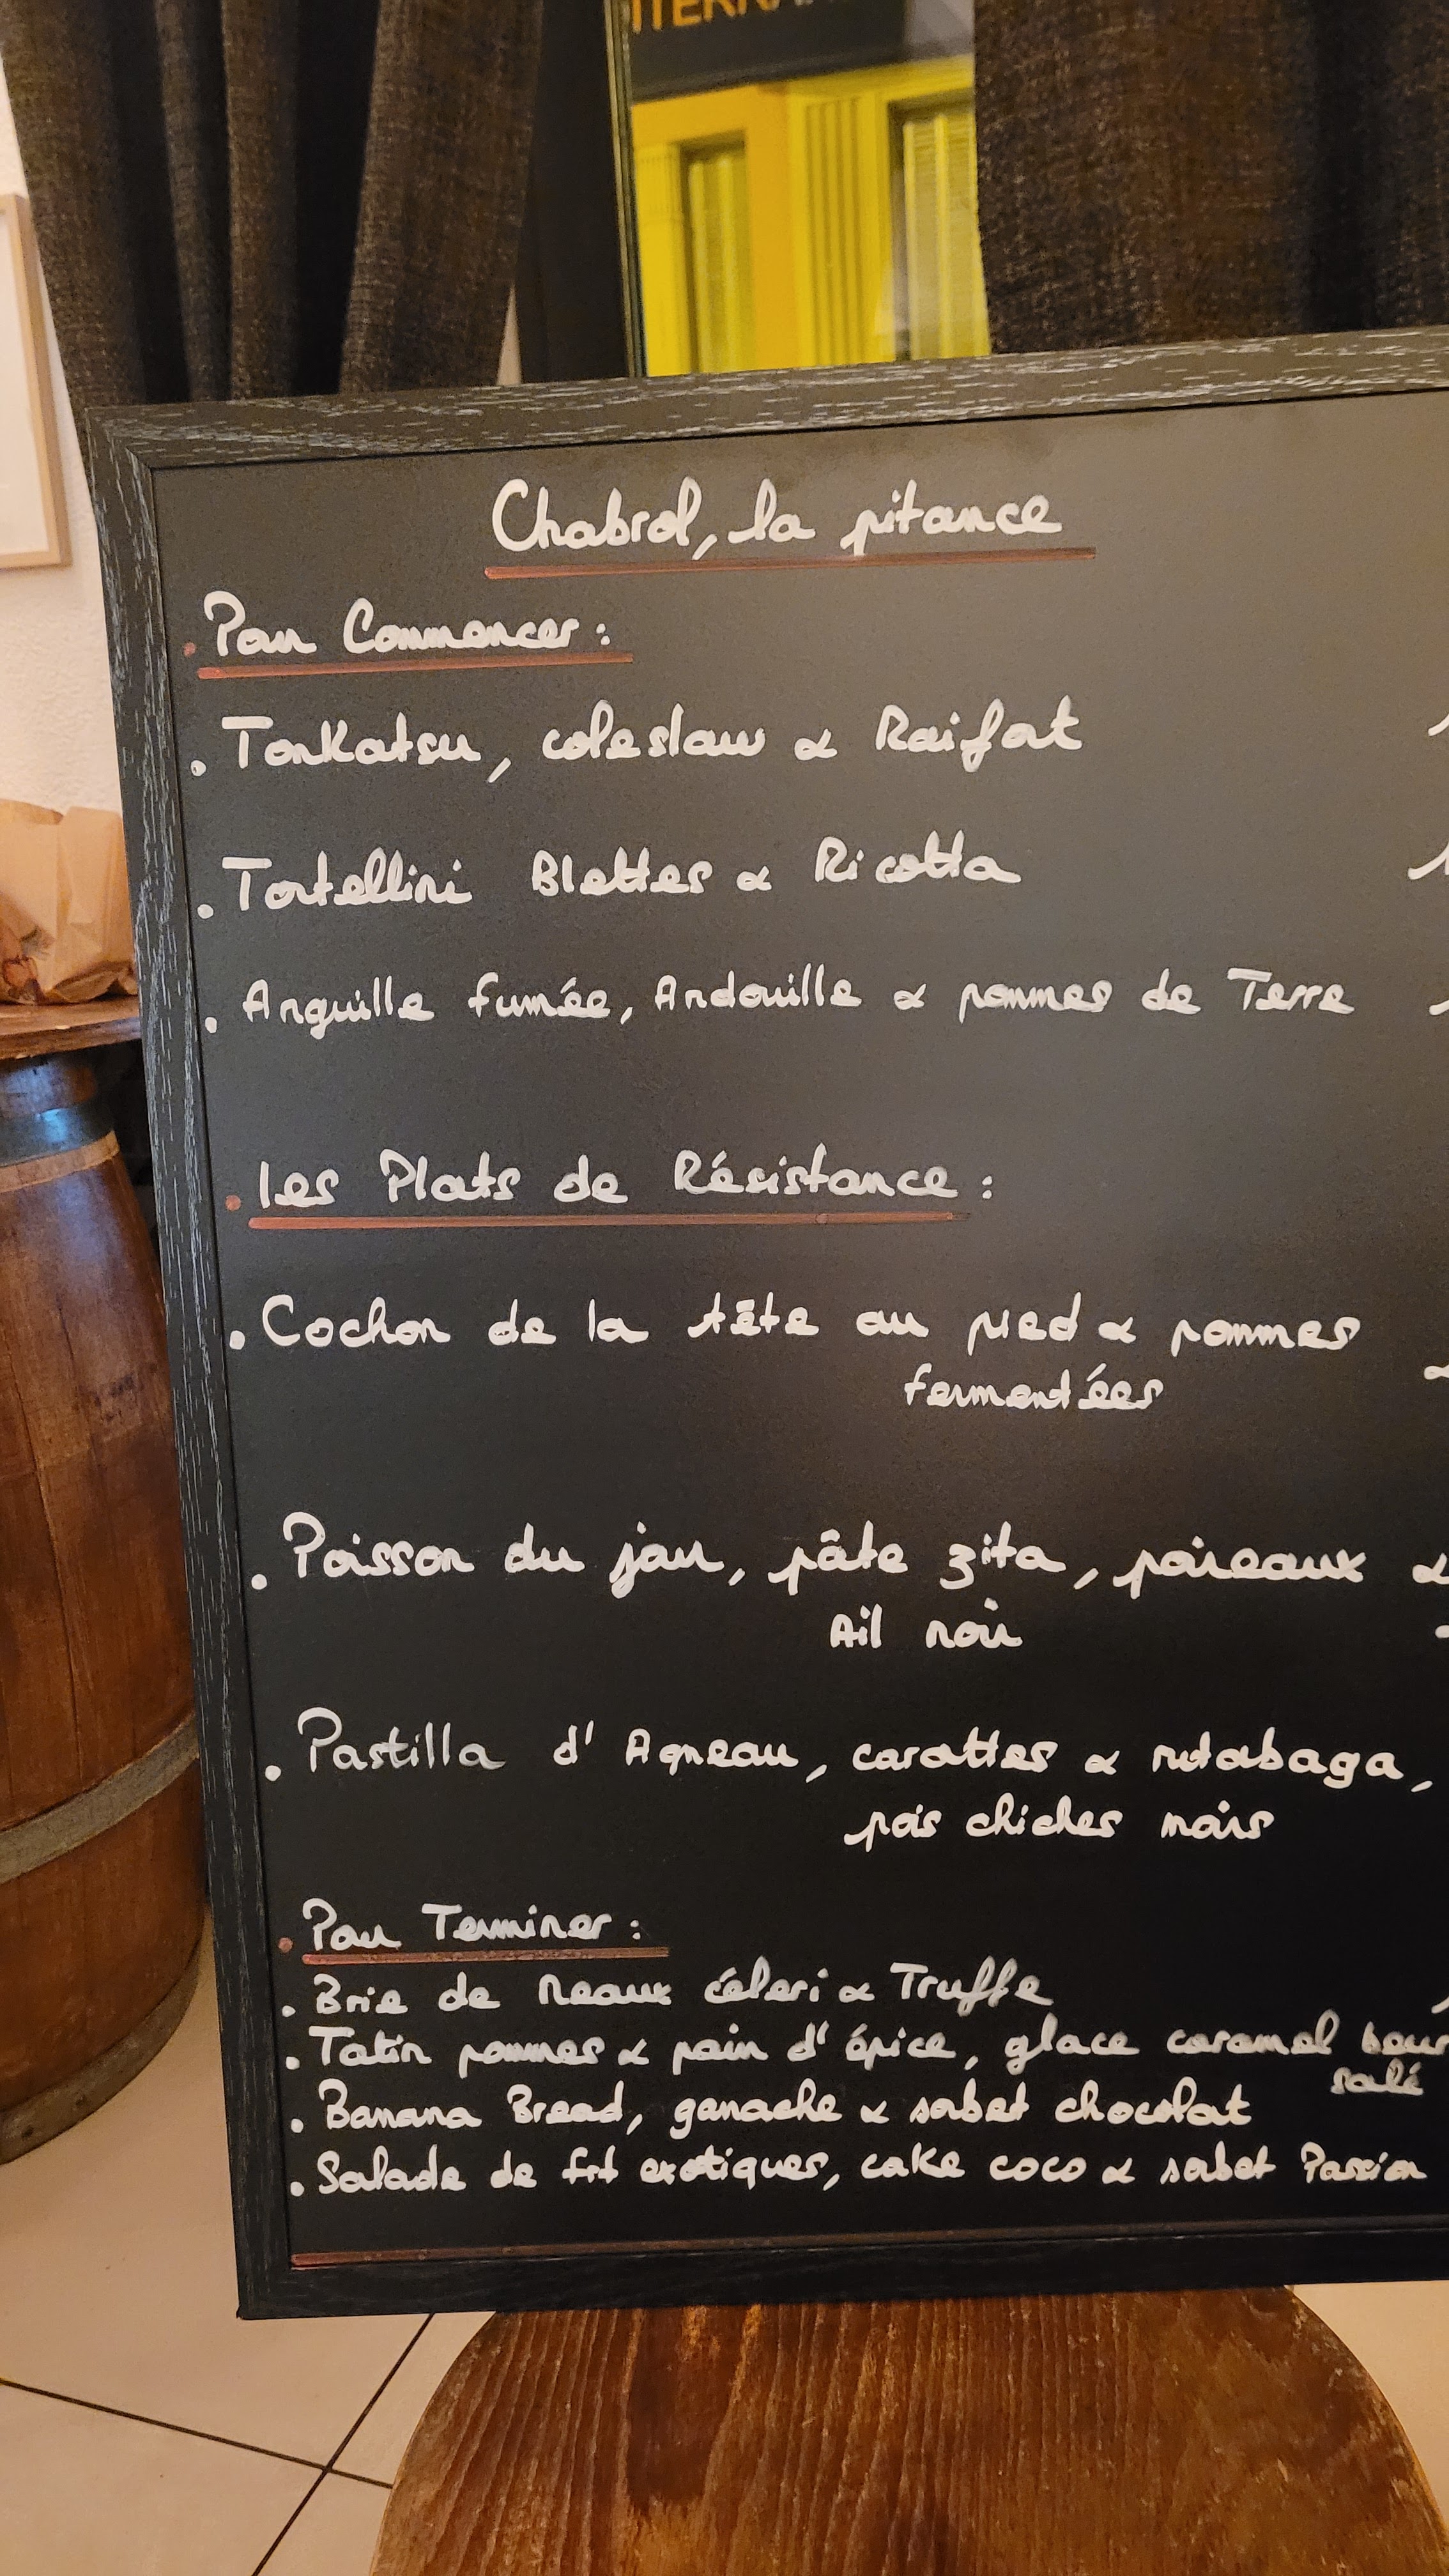 Chabrol, la pitance
. Pour Commencer :
. Tonkatsu, coleslaw & Raifort
. Tortellini Blettes & Ricotta
. Anguille fumée, Andouille & pommes de Terre
. les Plats de Résistance :
. Cochon de la tête au pied & pommes
fermentées
. Poisson du jour, pâte zita, poireaux &
Ail noir
. Pastilla d'Agneau, carottes & rutabaga,
pois chiches noirs
. Pour Terminer :
. Brie de Meaux céleri & Truffe
. Tatin pommes & pain d'épice, glace caramel beur
salé
. Banana Bread, ganache & sorbet chocolat
. Salade de frt exotiques, cake coco & sorbet Passion